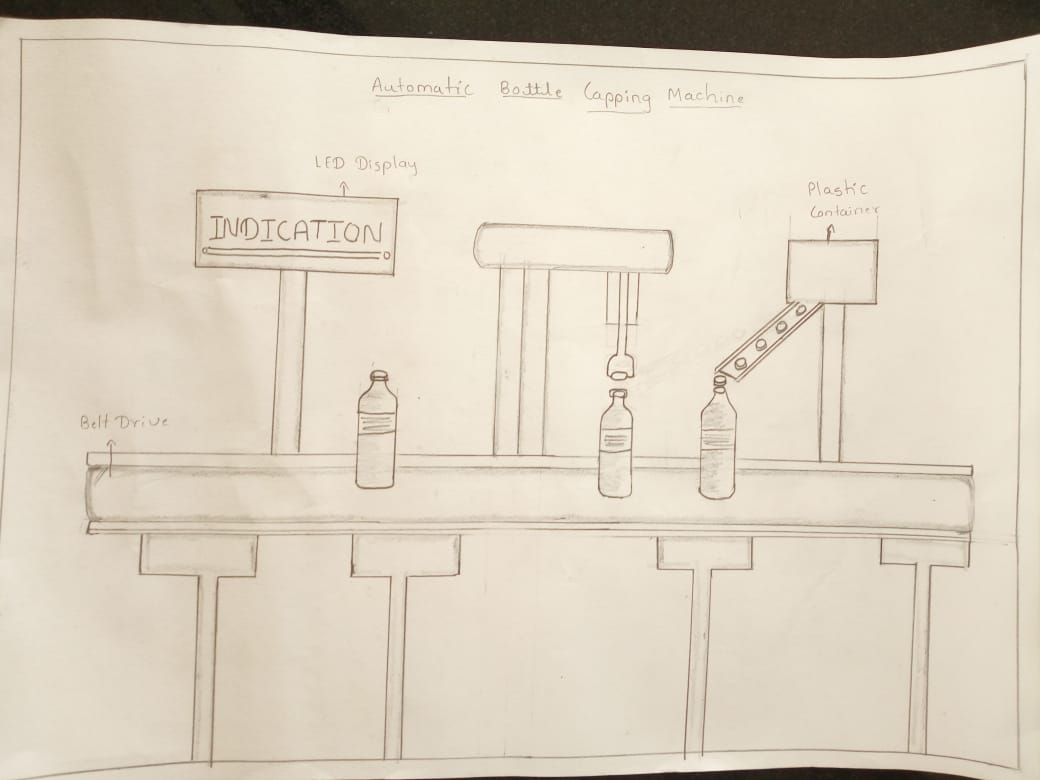 Automatic Bottle Capping Machine
LED Display
INDICATION
Plastic
Container
Belt Drive